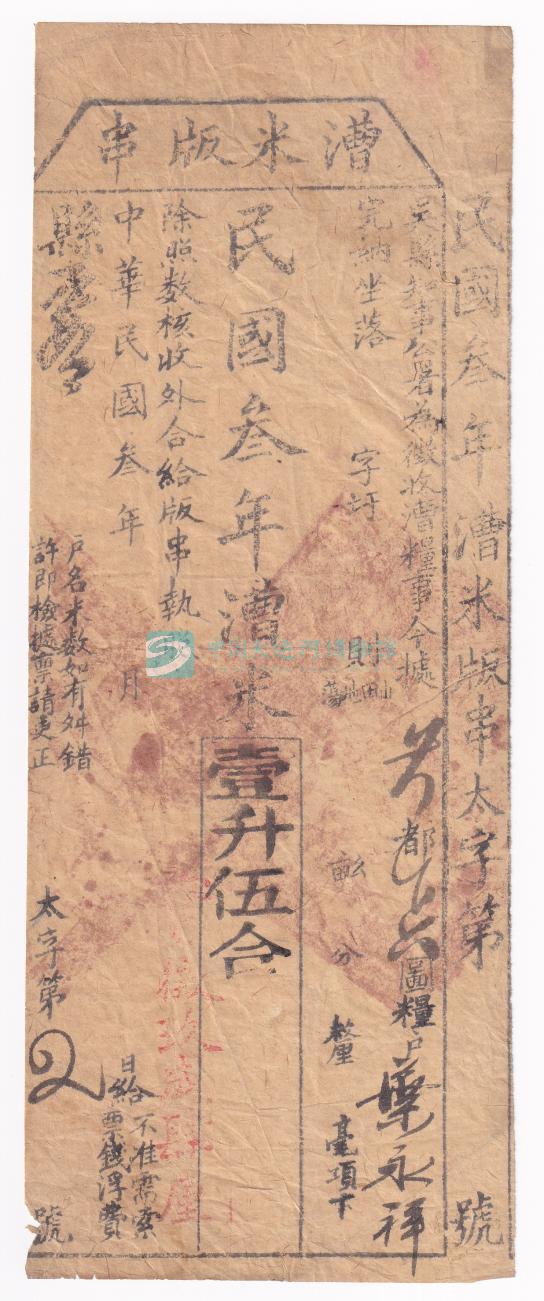 漕米版串
民國叁年漕米版串太字第 號
吳縣知事公署為徵收漕糧事今據 都 圖糧户葉永祥
完納坐落 字圩 則 山田地蕩 畝 分 釐 毫項下
民國叁年漕米壹升伍合
除照數核收外合給版串執
中華民國叁年 月 日給
不准需索
票錢浮費
縣
户名米數如有舛錯
許即檢據票請更正
太字第 號